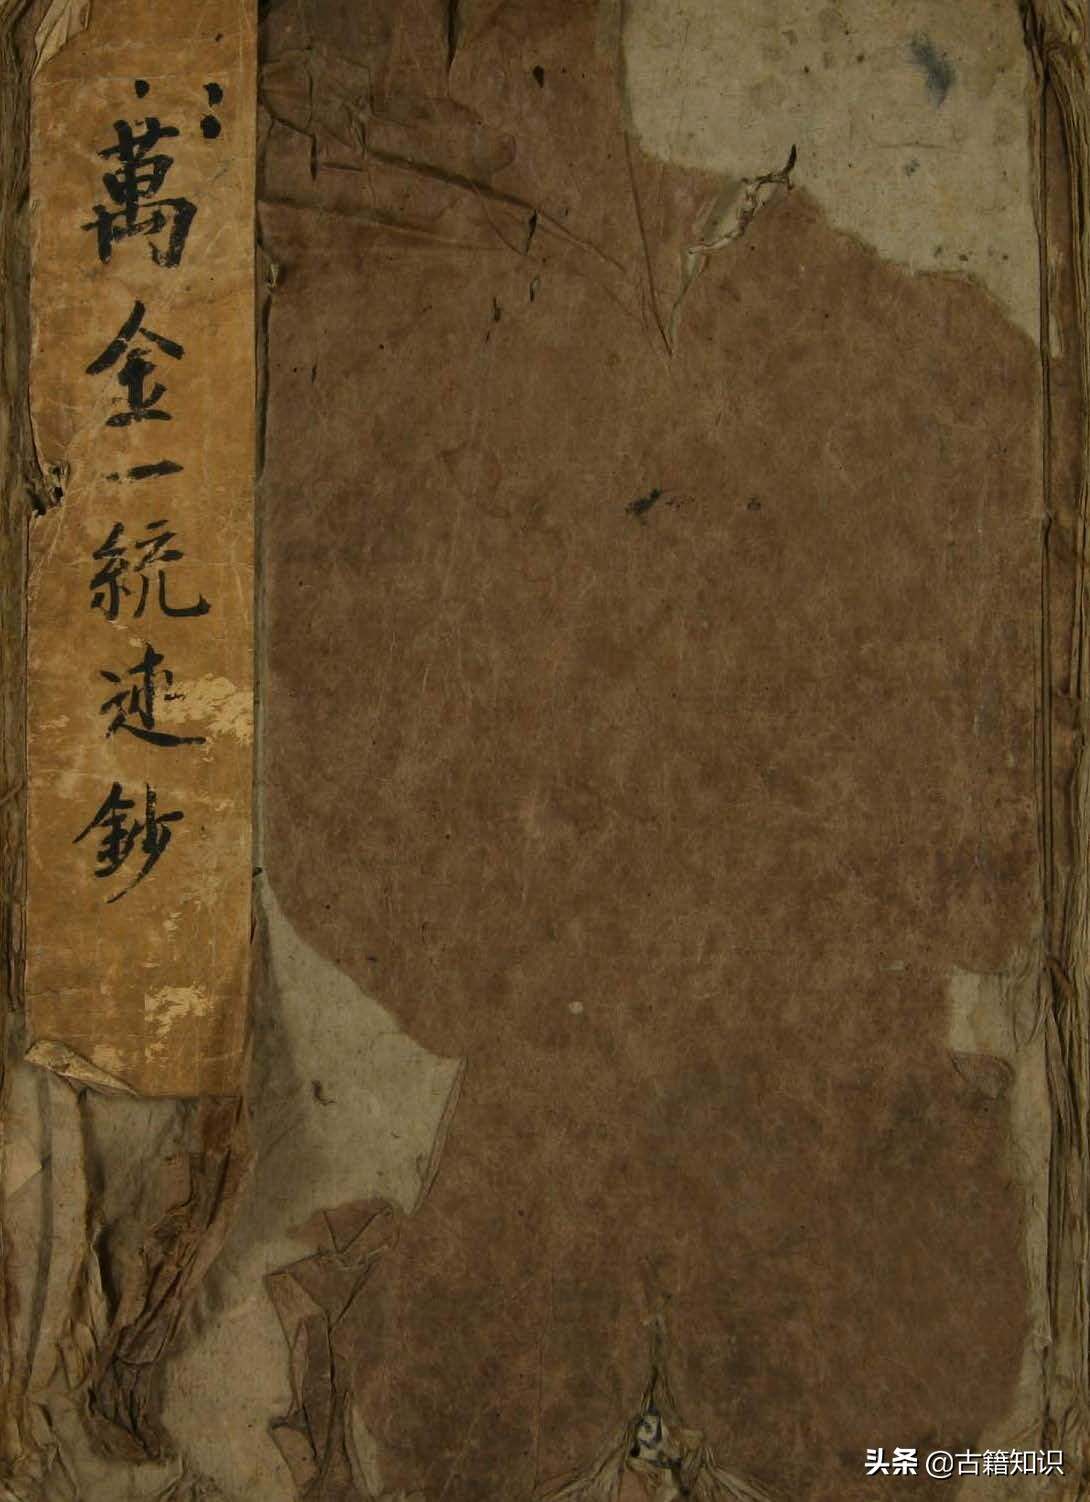 萬金一統述鈔
头条 @古籍知识